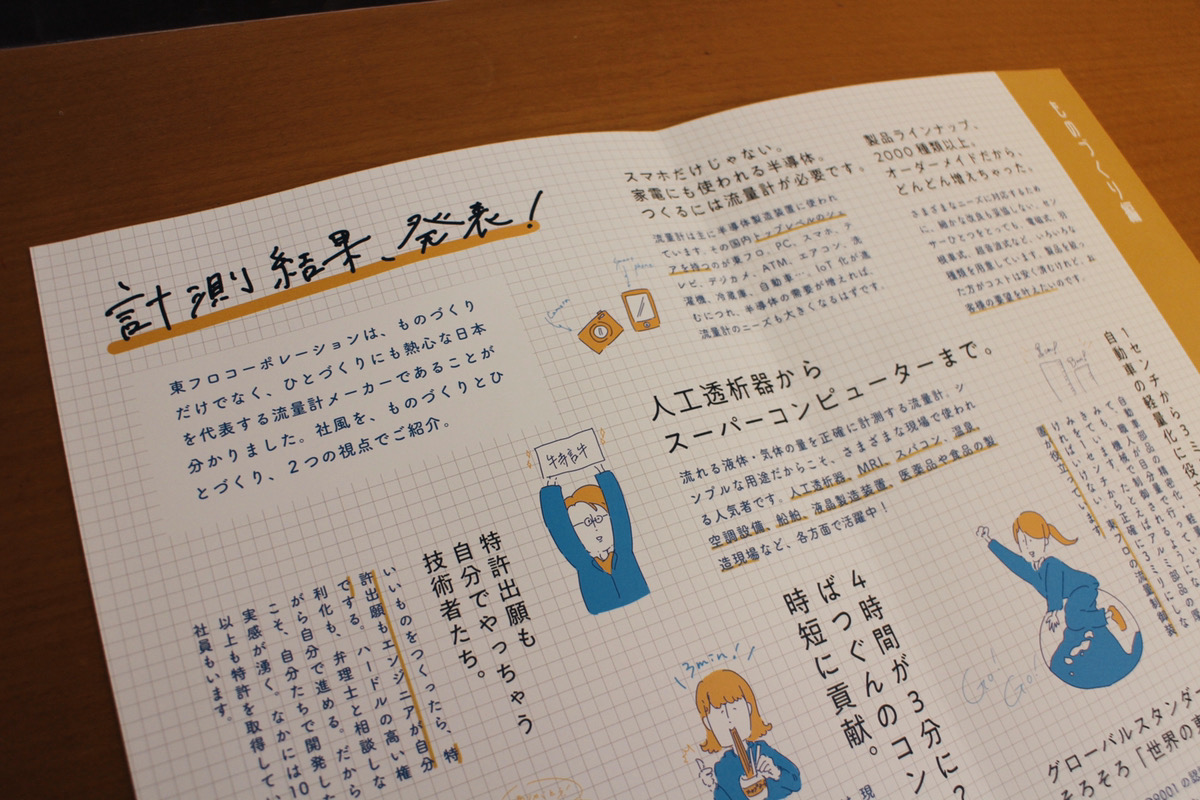 計測結果、発表！
東フロコーポレーションは、ものづくり
だけでなく、ひとづくりにも熱心な日本
を代表する流量計メーカーであることが
分かりました。社風を、ものづくりとひ
とづくり、2つの視点でご紹介。
スマホだけじゃない。
家電にも使われる半導体。
つくるには流量計が必要です。
流量計は主に半導体製造装置に使われ
ています。その国内トップレベルのシェ
アを持つのが東フロ。PC、スマホ、テ
レビ、デジカメ、ATM、エアコン、洗
濯機、冷蔵庫、自動車…。IoT化が進
むにつれ、半導体の需要が増えれば、
流量計のニーズも大きくなるはずです。
Camera
Smart
phone
製品ラインナップ、
2000種類以上。
オーダーメイドだから、
どんどん増えちゃった。
さまざまなニーズに対応するため
に、細かな改良も妥協しない。セン
サーひとつをとっても、電磁式、羽
根車式、超音波式など、いろいろな
種類を用意しています。製品を絞っ
た方がコストは安く済むけれど、お
客様の要望を叶えたいのです。
ものつくり編
人工透析器から
スーパーコンピューターまで。
流れる液体・気体の量を正確に計測する流量計。シ
ンプルな用途だからこそ、さまざまな現場で使われ
る人気者です。人工透析器、MRI、スパコン、温泉、
空調設備、船舶、液晶製造装置、医薬品や食品の製
造現場など、各方面で活躍中！
特許
特許出願も
自分でやっちゃう
技術者たち。
いいものをつくったら、特
許出願もエンジニアが自分
でする。ハードルの高い権
利化も、弁理士と相談しな
がら自分で進める。だから
こそ、自分たちで開発した
実感が湧く。なかには10
以上も特許を取得してい
社員もいます。
3min!
4時間が3分に？
ばつぐんのコン
時短に貢献。
1センチから3ミ
自動車の軽量化に役
GO!
GO!
グローバルスタンダー
そろそろ「世界の東